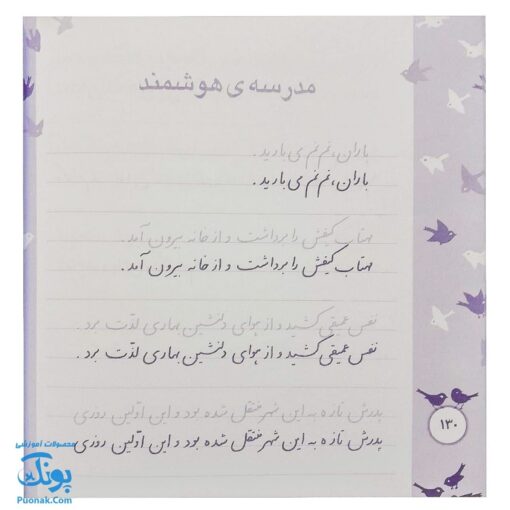 مدرسه ی هوشمند
باران، نم نم می بارید.
باران، نم نم می بارید.
مهتاب کیفش را برداشت و از خانه بیرون آمد.
مهتاب کیفش را برداشت و از خانه بیرون آمد.
نفس عمیقی کشید و از هوای دلنشین بهاری لذّت برد.
نفس عمیقی کشید و از هوای دلنشین بهاری لذّت برد.
پدرش تازه به این شهر منتقل شده بود و این اوّلین روزی
پدرش تازه به این شهر منتقل شده بود و این اوّلین روزی
۱۳۰
محصولات آموزشی
پونک
Puonak.Com